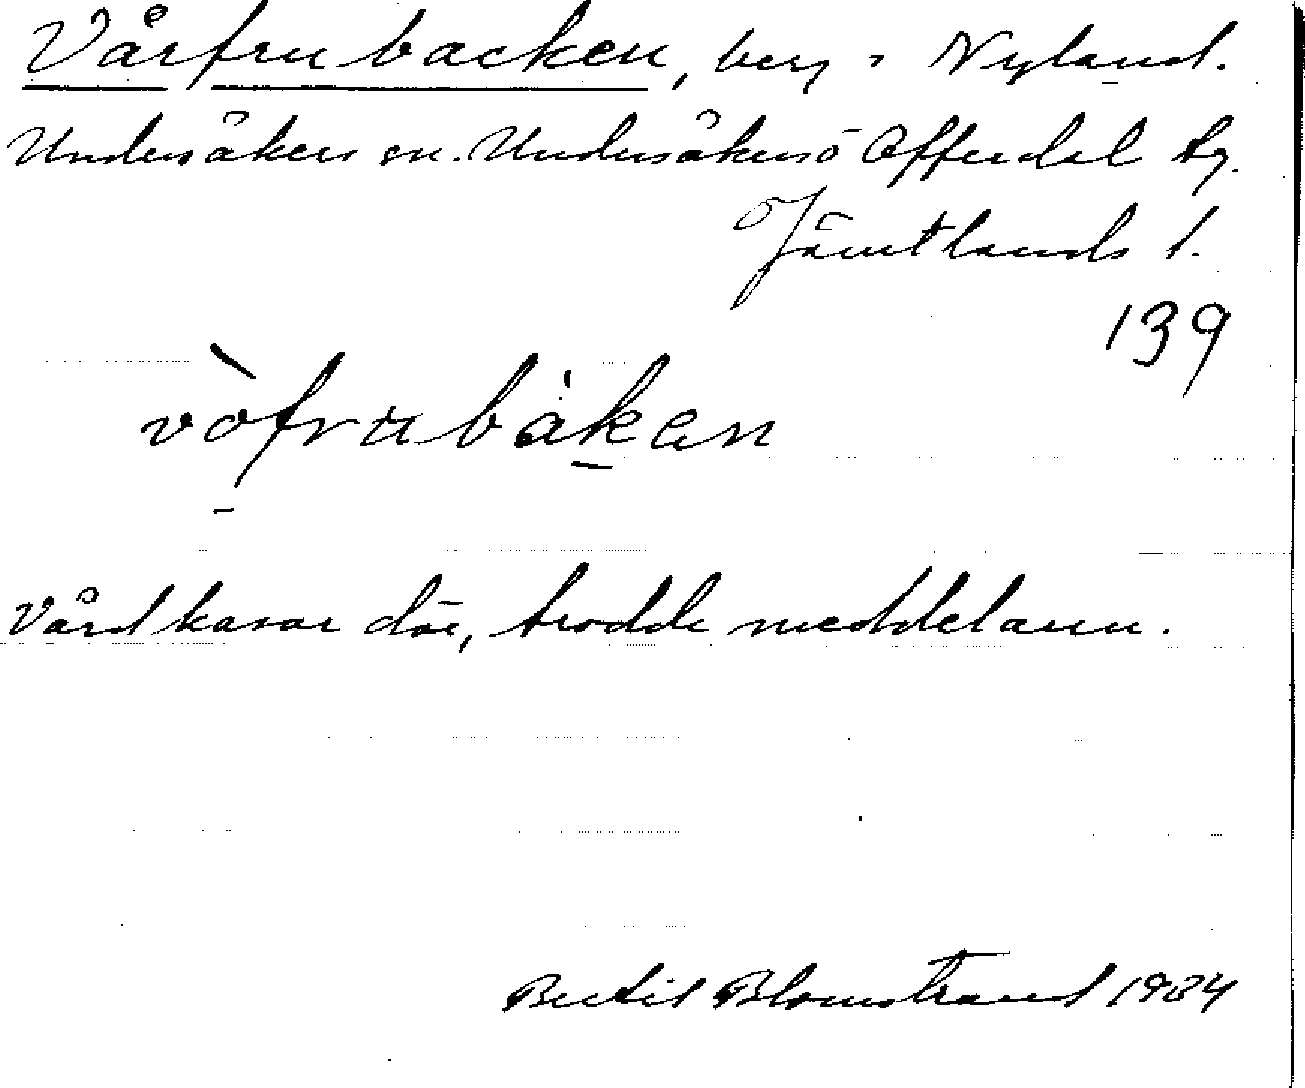 Vårfrubacken, berg i Nyland.
Undersåkers sn. Undersåkers o Offerdal tg.
Jämtlands l.
139
vòfrubákan
Vårdkasar där, trodde meddelaren.
Bertil Blomstrand 1934